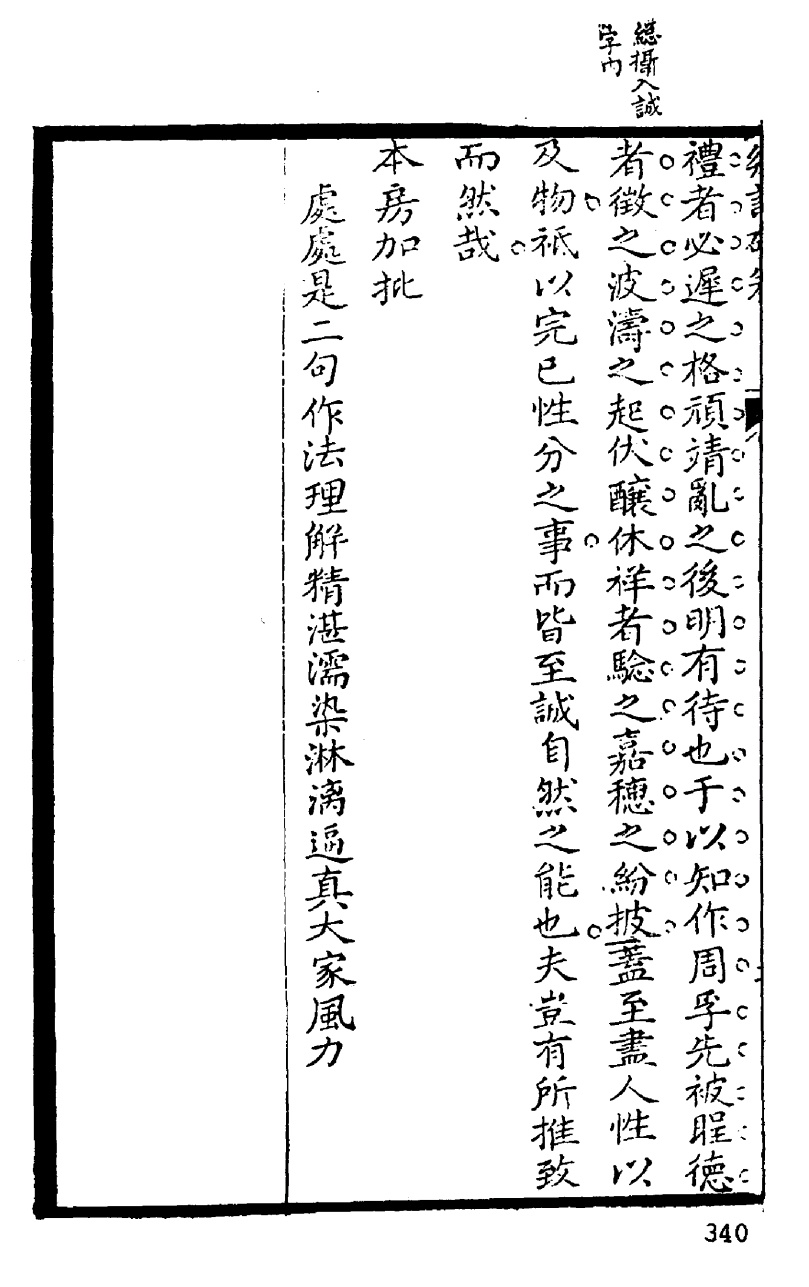 總攝入誠
字內
禮者必遲之格頑靖亂之後明有待也于以知作周孚先被睲德
者徵之波濤之起伏釀休祥者驗之嘉穗之紛披蓋至盡人性以
及物祇以完已性分之事而皆至誠自然之能也夫豈有所推致
而然哉
本房加批
處處是二句作法理解精湛濡染淋漓逼真大家風力
340